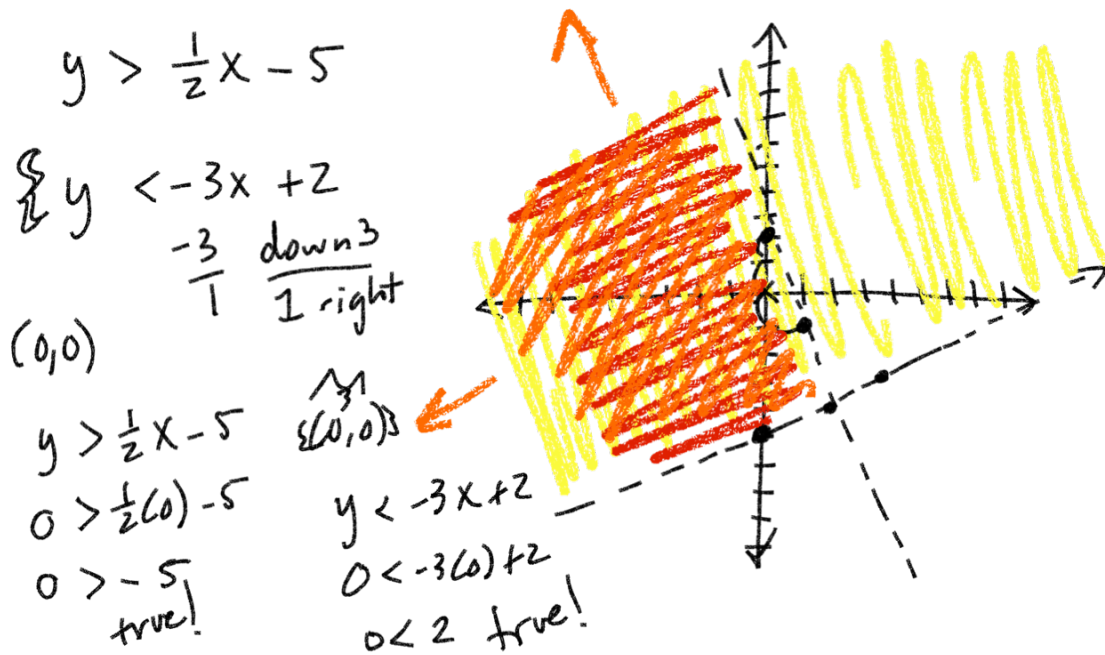 y > 1/2 x - 5
y < -3x + 2
-3/1 down 3/1 right
(0,0)
{(0,0)}
y > 1/2 x - 5
0 > 1/2 (0) - 5
0 > - 5
true!
y < -3x + 2
0 < -3(0) + 2
0 < 2 true!